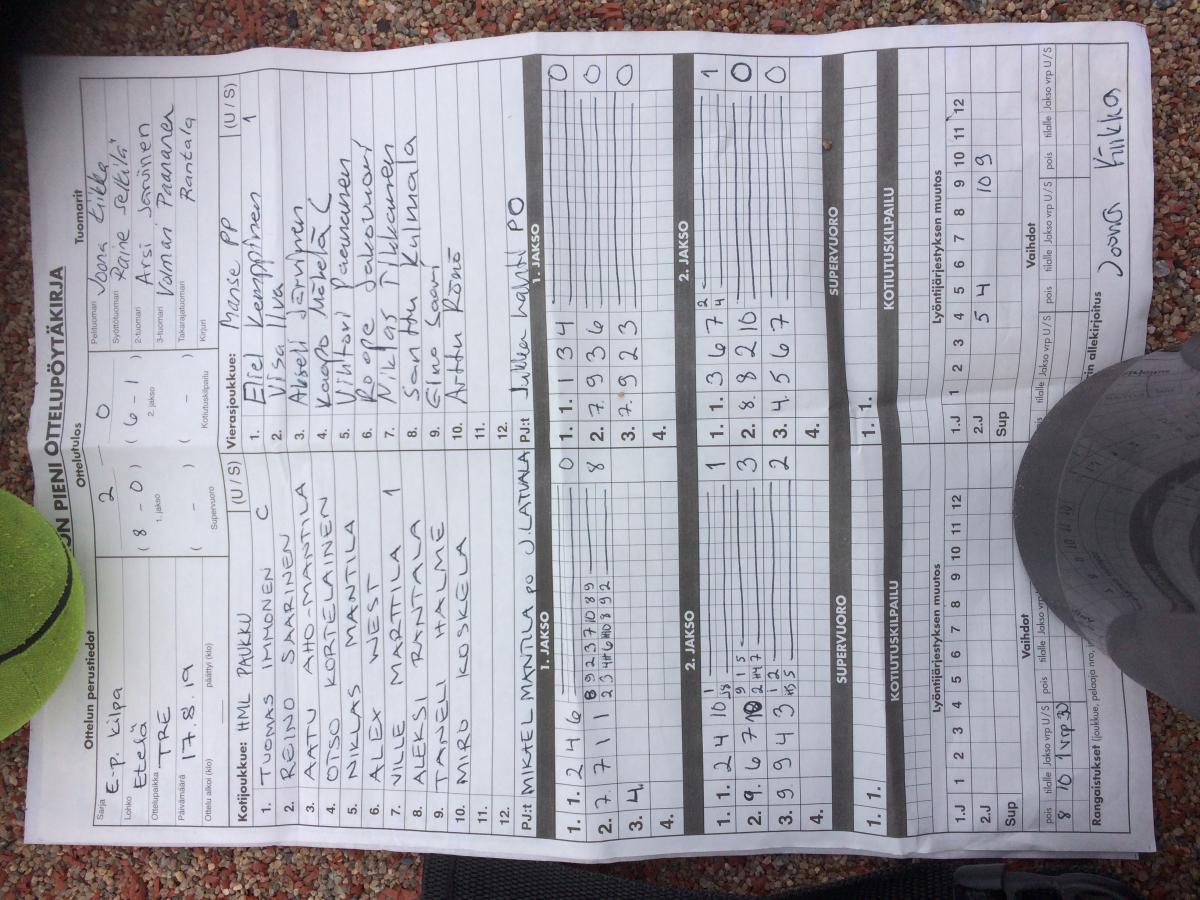 ON PIENI OTTELUPÖYTÄKIRJA
Ottelun perustiedot
Sarja E-p. Kilpa
Lohko Etelä
Ottelupaikka TRE
Päivämäärä 17.8.19
Ottelu alkoi (klo) päättyi (klo)
Ottelutulos
2 – 0
( 8 – 0 ) ( 6 – 1 )
1. jakso 2. jakso
( – ) ( – )
Supervuoro Kotiutuskilpailu
Tuomarit
Pelituomari Joona Kiikka
Syöttötuomari Raine Selkilä
2-tuomari Arsi Sarvinen
3-tuomari Valmari Paananen
Takarajatuomari Rantala
Kirjuri
Kotijoukkue: HML PAUKKU (U / S)
1. TUOMAS IMMONEN C
2. REINO SAARINEN
3. AATU AHO-MANTILA
4. OTSO KORTELAINEN
5. NIKLAS MANTILA
6. ALEX WEST
7. VILLE MARTTILA 1
8. ALEKSI RANTALA
9. TANELI HALME
10. MIRO KOSKELA
11.
12.
PJ:t MIKAEL MANTILA PO J. LATVALA
Vierasjoukkue: Manse PP (U / S)
1. Eliel Kemppinen 1
2. Visa Ilva
3. Akseli Järvinen
4. Kaapo Mäkelä C
5. Vihtori Paananen
6. Roope Jakovuori
7. Niklas Tikkanen
8. Santtu Kulmala
9. Eino Saari
10. Arttu Könö
11.
12.
PJ:t Jukka PO
1. JAKSO
1. 1. 2 4 6 0
2. 7. 7 1 1 8
3. 4.
4.
1. JAKSO
1. 1. 1 3 4 0
2. 7. 9 3 6 0
3. 7. 9 2 3 0
4.
2. JAKSO
1. 1. 2 4 10 1
2. 9. 6 7 3
3. 9 4 3 2
4.
2. JAKSO
1. 1. 3 6 7 1
2. 8. 8 2 10 0
3. 4. 5 6 7 0
4.
SUPERVUORO
1. 1.
SUPERVUORO
1. 1.
KOTIUTUSKILPAILU
KOTIUTUSKILPAILU
Lyöntijärjestyksen muutos
1 2 3 4 5 6 7 8 9 10 11 12
1.J
2.J
Sup
Lyöntijärjestyksen muutos
1 2 3 4 5 6 7 8 9 10 11 12
1.J
2.J 5 4 10 9
Sup
Vaihdot
pois tilalle Jakso vrp U/S pois tilalle Jakso vrp U/S
8 10 1 vrp 30
Vaihdot
tilalle Jakso vrp U/S pois tilalle Jakso vrp U/S
Rangaistukset (joukkue, pelaaja nro,
allekirjoitus Joona Kiikka